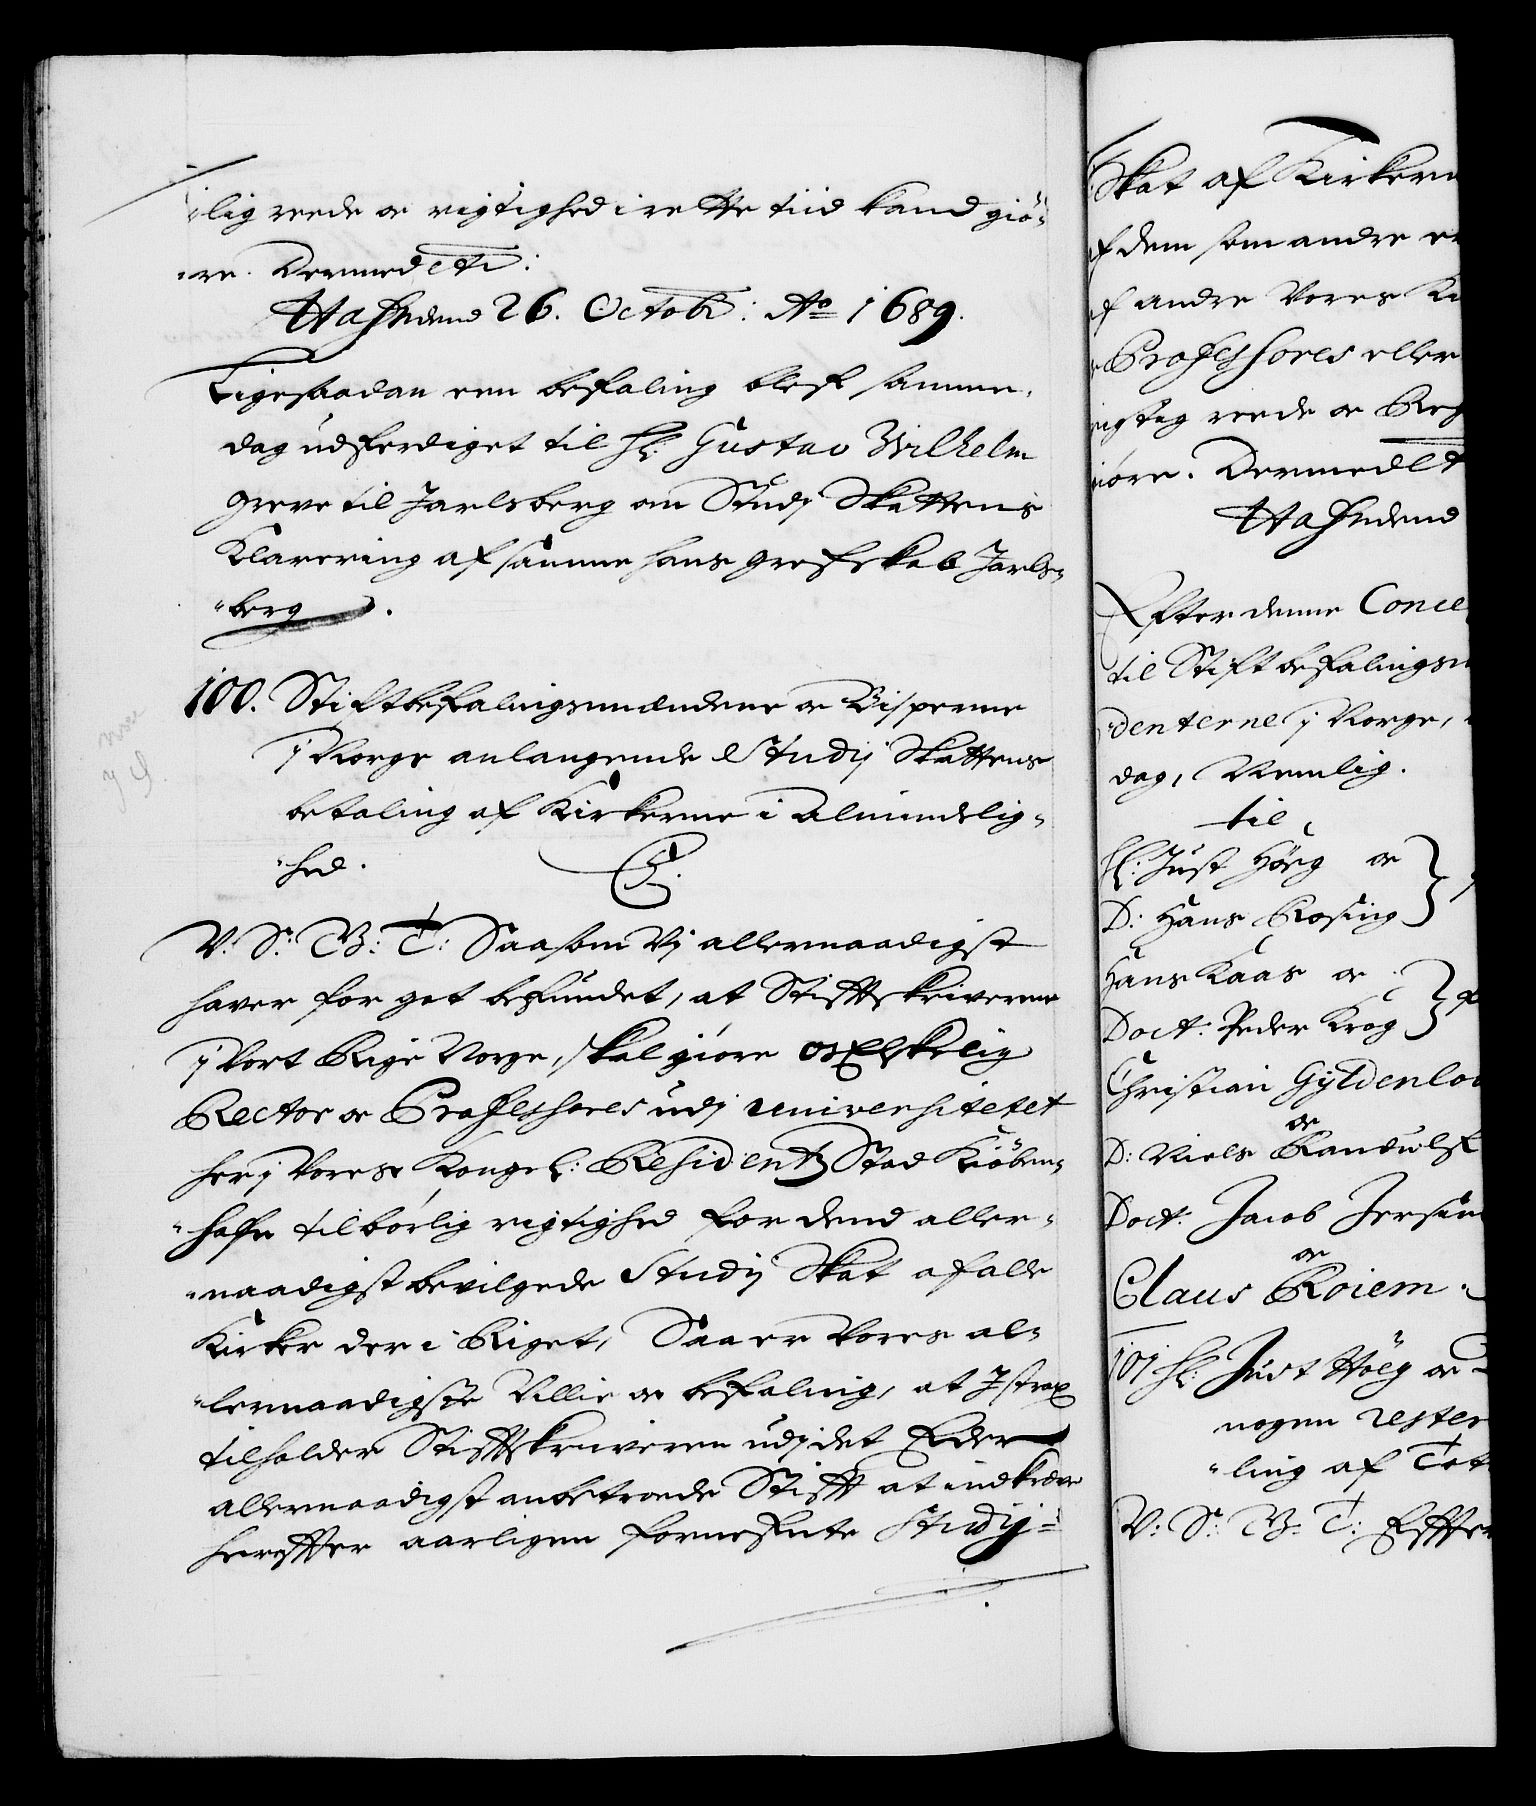 lig reede oc rigtighed i rette tiid kand giö-
re. Dermed etc:
Hafn dend 26. Octobr: Ao 1689.
Ligesaadan een befaling blef samme
dag udferdiget til Hr: Gustav Wilhelm
Greve til Jarlsberg om Studij Skattens
Klarering af samme hans Grefskab Jarls-
berg.
100. Stiftbefalingsmændene oc Bisperne
j Norge anlangende Studij Skattens
betaling af Kirkerne i Almindelig-
hed.
C5.
V: S: G: T: Saasom Vj allernaadigst
hafver for got befundet, at Stiftskriverne
j Vort Rige Norge, skal giöre os Elskelig
Rector oc Professores udj Universitetet
her j Vores Kongel: Residentz Stad Kiöben-
hafn tilbörlig rigtighed for dend aller-
naadigst bevilgede Studij Skat af alle
Kirker der i Riget, Saa er Vores al-
lernaadigste Villie oc befaling, at I strax
tilholder Stiftskriveren udj det Eder
allernaadigst anbetroede Stift at indkræve
herefter aarligen fornefnte Studij-
Skat af Kirkern
af dem som andre
af andre Vores Ki
Professores eller
rigtig reede oc Reg
giöre. Dermed etc
Hafn dend
Efter denne Conce
til Stiftbefalingsm
denterne j Norge,
dag, Nemlig.
til
Hr: Just Höeg oc
D: Hans Rosing
Hans Kaas oc
Doct. Peder Krog
Christian Gyldenlöv
oc
D: Niels Randulf
Doct. Jacob Jersin
oc
Claus Roiem.
101 Hr: Just Höeg oc
nogen rester
ling af Tot
V: S: G: T: Efter